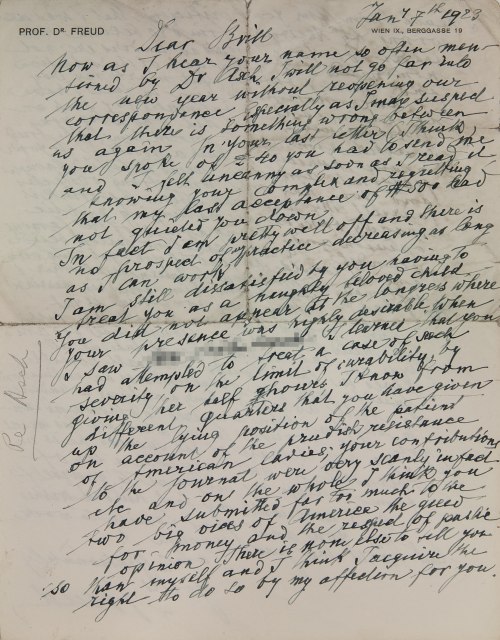 PROF. DR. FREUD
Jany 7th 1923
WIEN IX., BERGGASSE 19
Dear Brill
Now as I hear your name so often men-
tioned by Dr Asch, I will not go far into
the new year without reopening our
correspondence especially as I may suspect
that there is something wrong between
us again. In your last letter (I think)
you spoke of 40 you had to send me
and I felt uncanny as soon as I read it
knowing your complex and regretting
that my last acceptance of $500 had
not quieted you down.
In fact I am pretty well off and there is
no prospect of practice decreasing as long
as I can work.
I am still dissatisfied by you having to
treat you as a naughty beloved child.
You did not appear at the Congress where
your presence was highly desirable. When
I saw I learned that you
had attempted to treat a case of such
severity on the limit of curability, by
giving her half hours. I know from
different quarters that you have given
up the lying position of the patient
on account of the prudish resistance
of American ladies, your contributions
to the Journal were very scanly in fact
etc and on the whole I think you
have submitted far too much to the
two big vices of America the greed
for money and the respect of public
opinion. There is none else to tell you
so than myself and I think I acquire the
right to do so by my affection for you
Re Asch